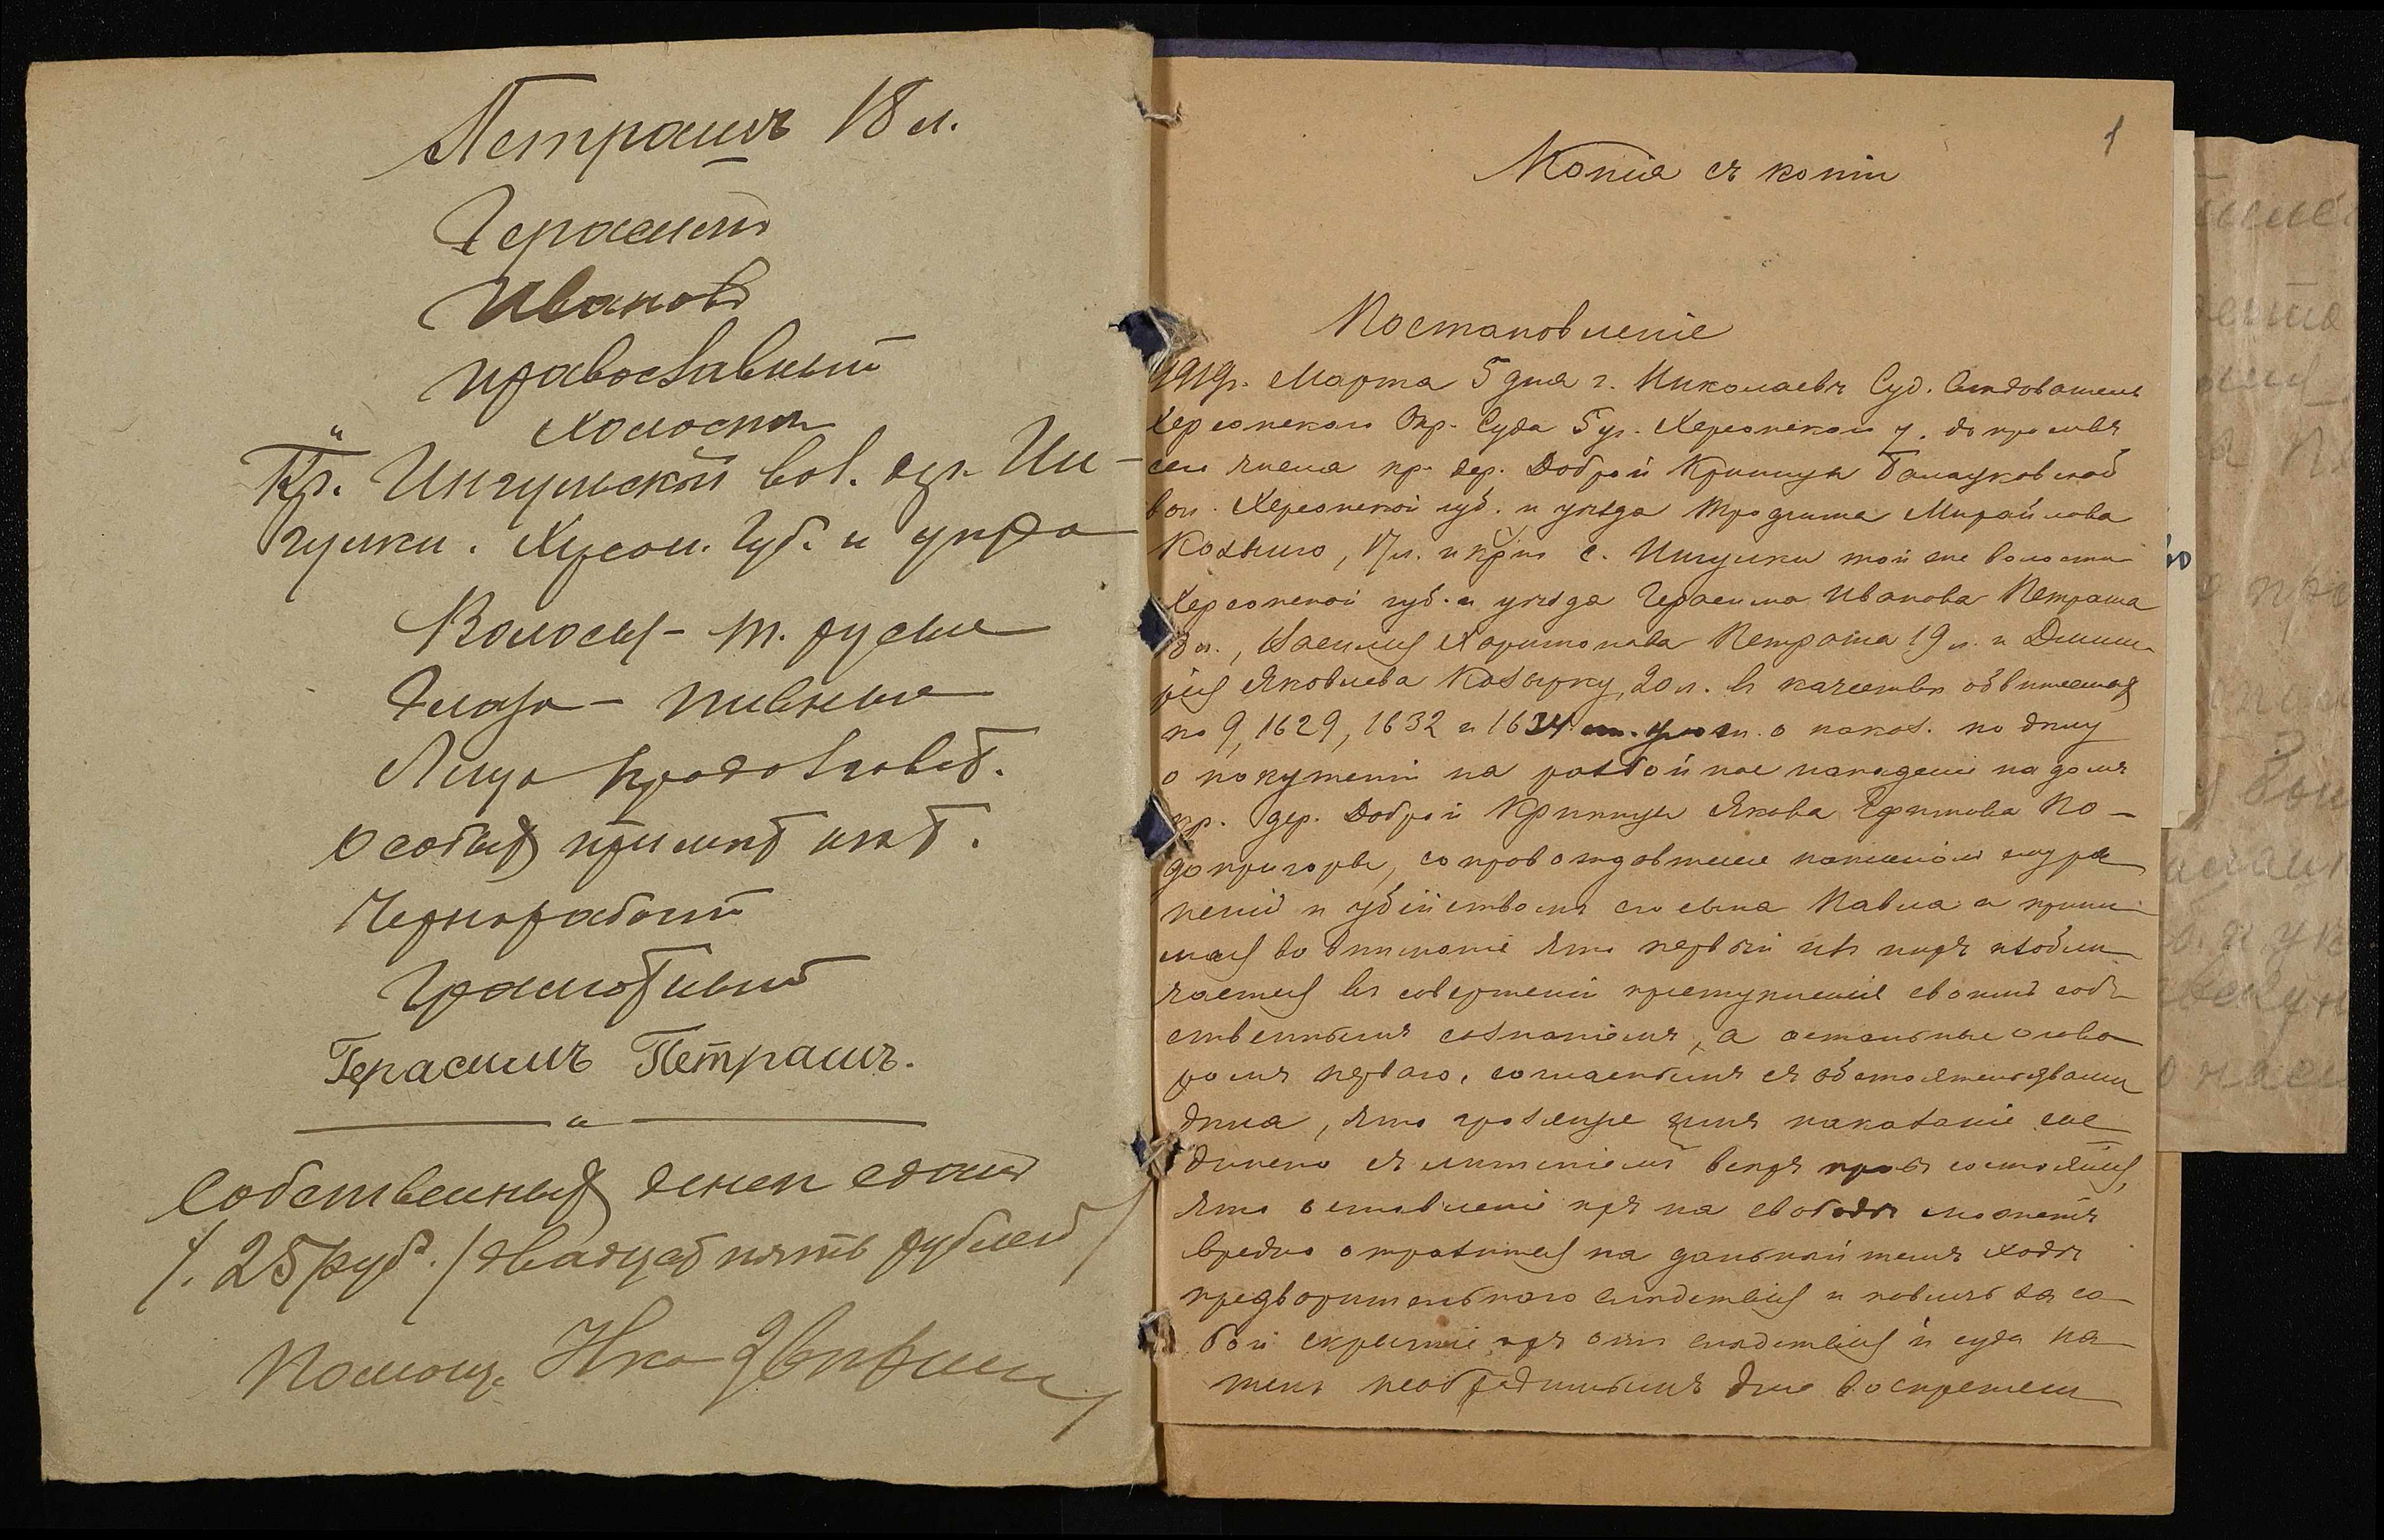 Петрашъ 18 л.
Герасимъ
Ивановъ
православный
холостъ
Кр. Ингульской вол. дер. Ин-
гулки. Херсон. Губ. и уѣзда
Волосы - т. русые
Глаза - пивные
Лицо продолговат.
особых примѣт нѣт.
Чернорабочій
Грамотный
Герасимъ Петрашъ.
Собственных денег сдано
25 руб. (двадцат пять рублей)
Помощ.
1
Копія съ копіи
Постановленіе
1919г. Марта 5 дня г. Николаевъ Суд. Слѣдователь
Херсонскаго Окр. Суда 5 уч. Херсонскаго у. допросивъ
сего числа кр. дер. Доброй Криницы Балацковской
вол. Херсонской губ. и уѣзда Трофима Михайлова
17 л. и кр-нъ с. Ингулки той же волости
Херсонской губ. и уѣзда Герасима Иванова Петраша
18 л., Василія Харитонова Петраша 19 л. и Дмит-
рія Яковлева Козырку, 20 л. въ качествѣ обвиняемыхъ
по 9, 1629, 1632 и 1634 ст. улож. о наказ. по дѣлу
о покушеніи на разбойное нападеніе на домъ
кр. дер. Доброй Криницы Якова Ефимова По-
допригоры, сопровождавшееся нанесеніемъ ему ра-
неній и убійствомъ его сына Павла и прини-
мая во вниманіе что первый изъ нихъ изобли-
чается въ совершеніи преступленія своимъ соб-
ственнымъ сознаніемъ, а остальные огово-
ромъ перваго, согласнымъ съ обстоятельствами
дѣла, что грозящее имъ наказаніе сое-
динено съ лишеніемъ всѣхъ правъ состоянія,
что оставленіе ихъ на свободѣ можетъ
вредно отразиться на дальнѣйшемъ ходѣ
предварительнаго слѣдствія и повлечь за со-
бой скрытіе ихъ отъ слѣдствія и суда на-
шелъ необходимымъ для воспрепят